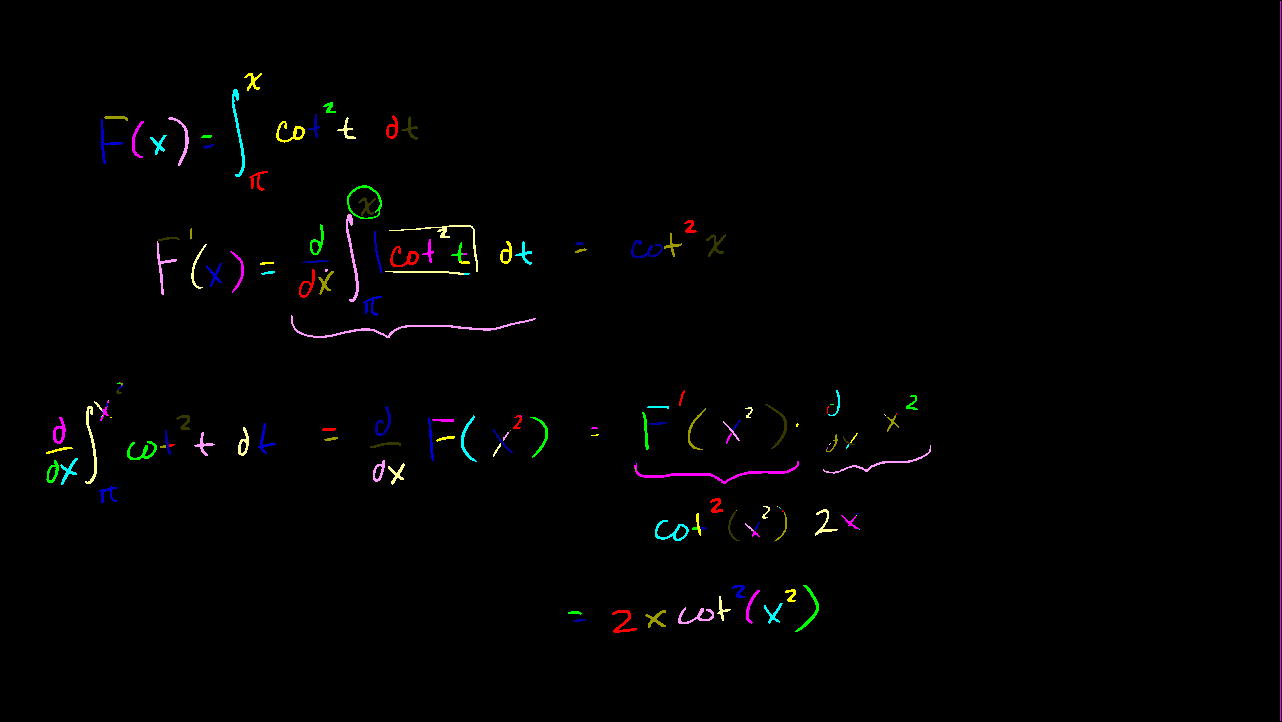 F(x) = ∫_π^x cot² t dt
F'(x) = d/dx ∫_π^x cot² t dt = cot² x
d/dx ∫_π^{x²} cot² t dt = d/dx F(x²) = F'(x²) · d/dx x²
cot²(x²) 2x
= 2x cot²(x²)